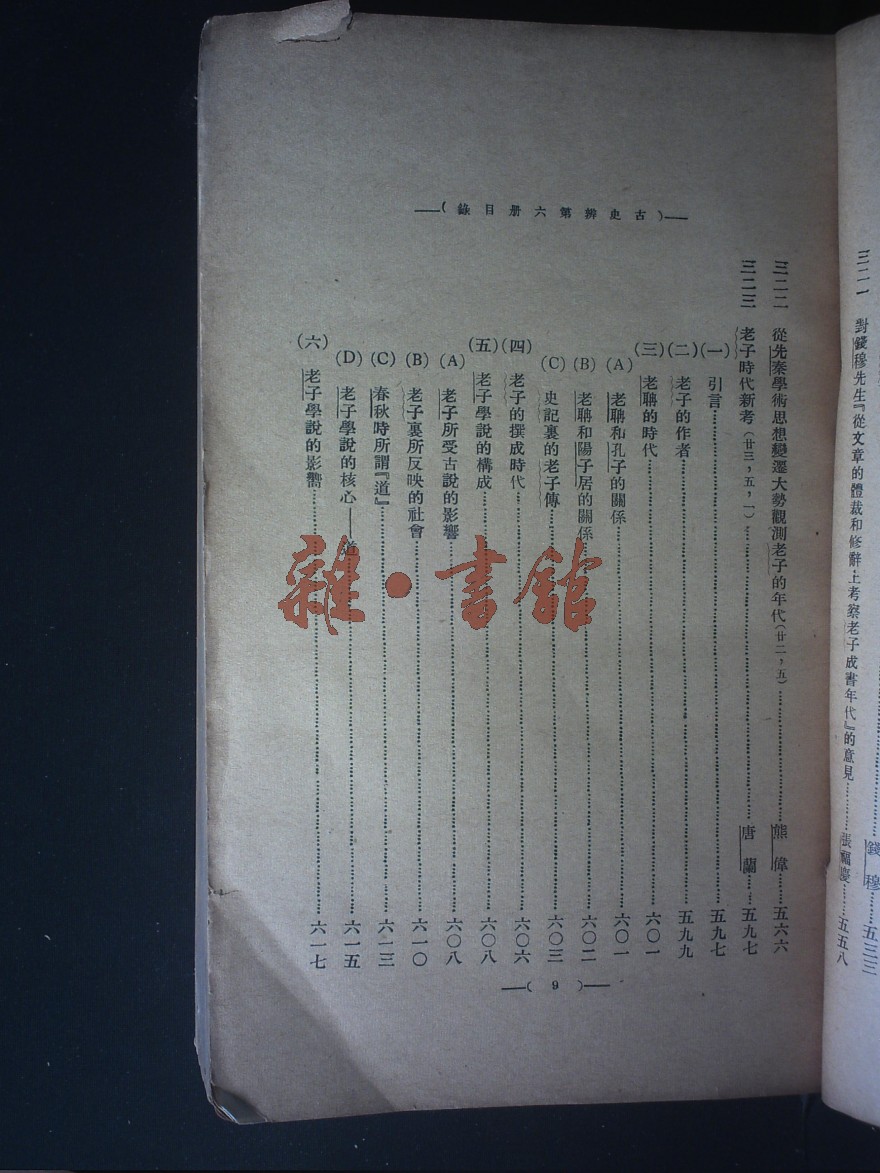 三二一 對錢穆先生『從文章的體裁和修辭上考察老子成書年代』的意見…………張福慶……五五八
錢 穆……五三三
——(古史辨第六册目錄)——
三二二 從先秦學術思想變遷大勢觀測老子的年代(廿二,五)……熊 偉……五六六
三二三 老子時代新考(廿三,五,一)……唐 蘭……五九七
(一) 引言……五九七
(二) 老子的作者……五九九
(三) 老聃的時代……六〇一
(A) 老聃和孔子的關係……六〇一
(B) 老聃和陽子居的關係……六〇二
(C) 史記裏的老子傳……六〇三
(四) 老子的撰成時代……六〇六
(五) 老子學說的構成……六〇八
(A) 老子所受古說的影響……六〇八
(B) 老子裏所反映的社會……六一〇
(C) 春秋時所謂『道』……六一三
(D) 老子學說的核心——道……六一五
(六) 老子學說的影嚮……六一七
——( 9 )——
雜·書館